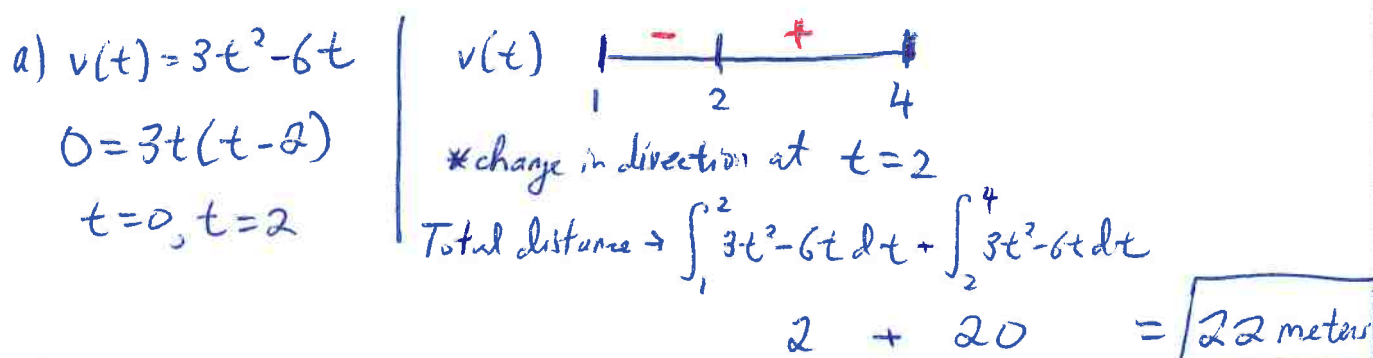 a) v(t) = 3t²-6t
0 = 3t(t-2)
t=0, t=2
v(t) - +
1 2 4
*change in direction at t=2
Total distance → ∫₁² 3t²-6t dt + ∫₂⁴ 3t²-6t dt
2 + 20 = 22 meters